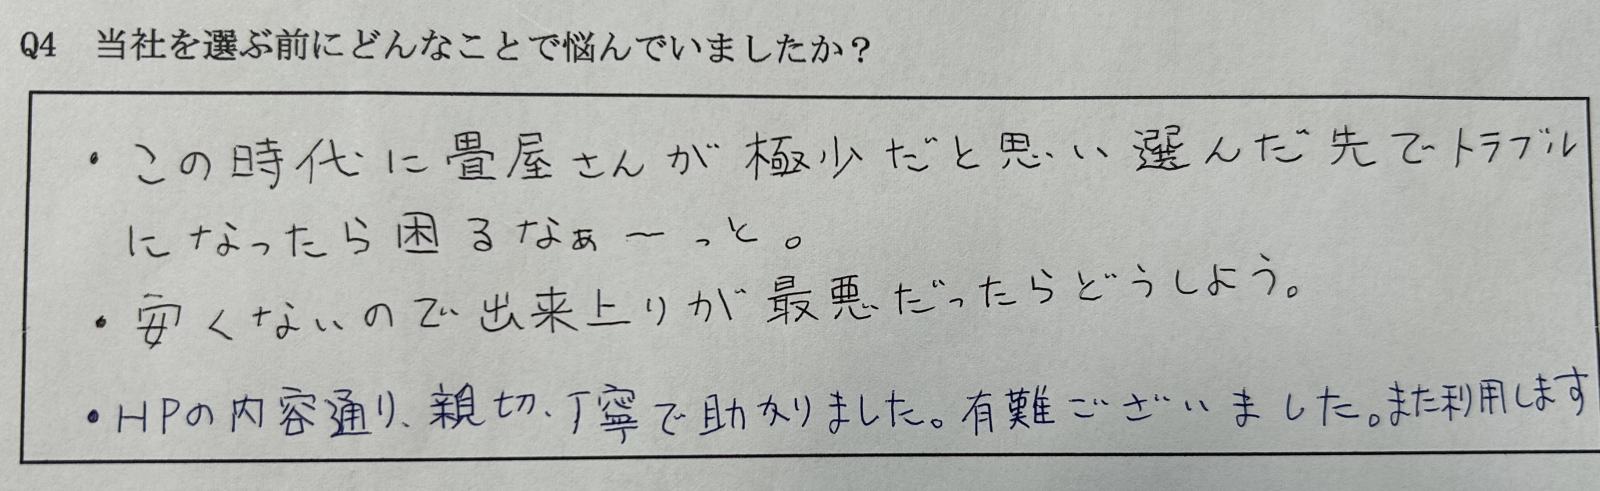 Q4 当社を選ぶ前にどんなことで悩んでいましたか？
・この時代に畳屋さんが極少だと思い選んだ先でトラブル
になったら困るなぁ〜っと。
・安くないので出来上りが最悪だったらどうしよう。
・HPの内容通り、親切、丁寧で助かりました。有難ございました。また利用します